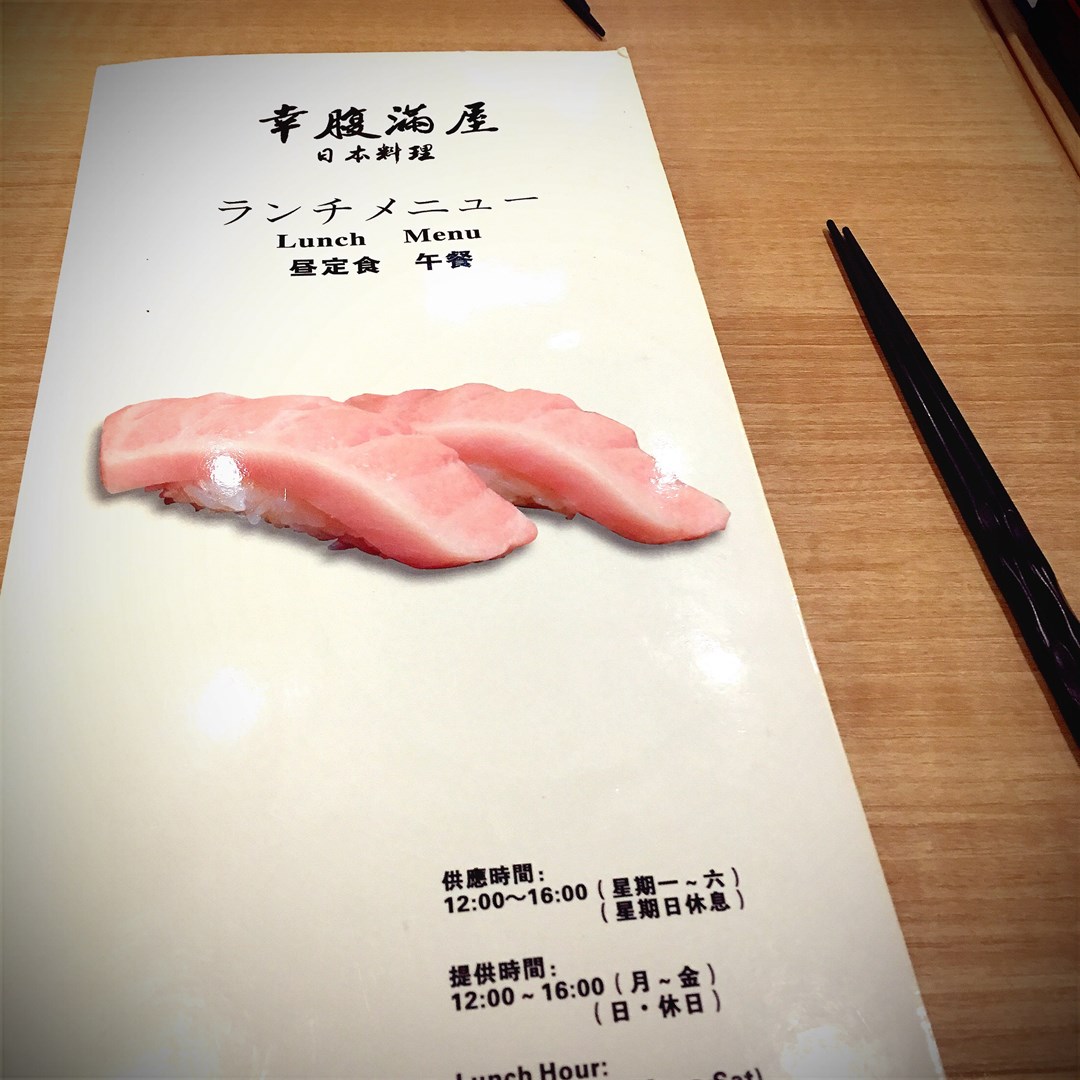 幸腹滿屋
日本料理
ランチメニュー
Lunch Menu
昼定食 午餐
供應時間:
12:00～16:00 (星期一~六)
(星期日休息)
提供時間:
12:00~16:00 (月~金)
(日・休日)
Lunch Hour:
Sat)